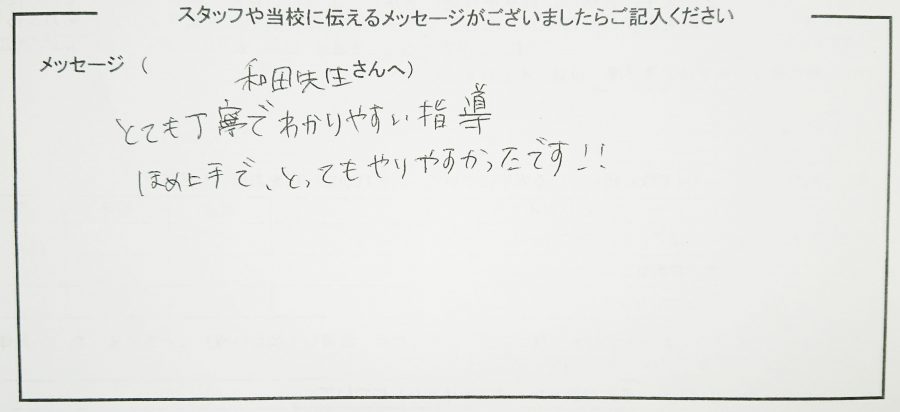 スタッフや当校に伝えるメッセージがございましたらご記入ください
メッセージ（ 和田先生さんへ）
とても丁寧でわかりやすい指導
ほめ上手で、とってもやりやすかったです!!